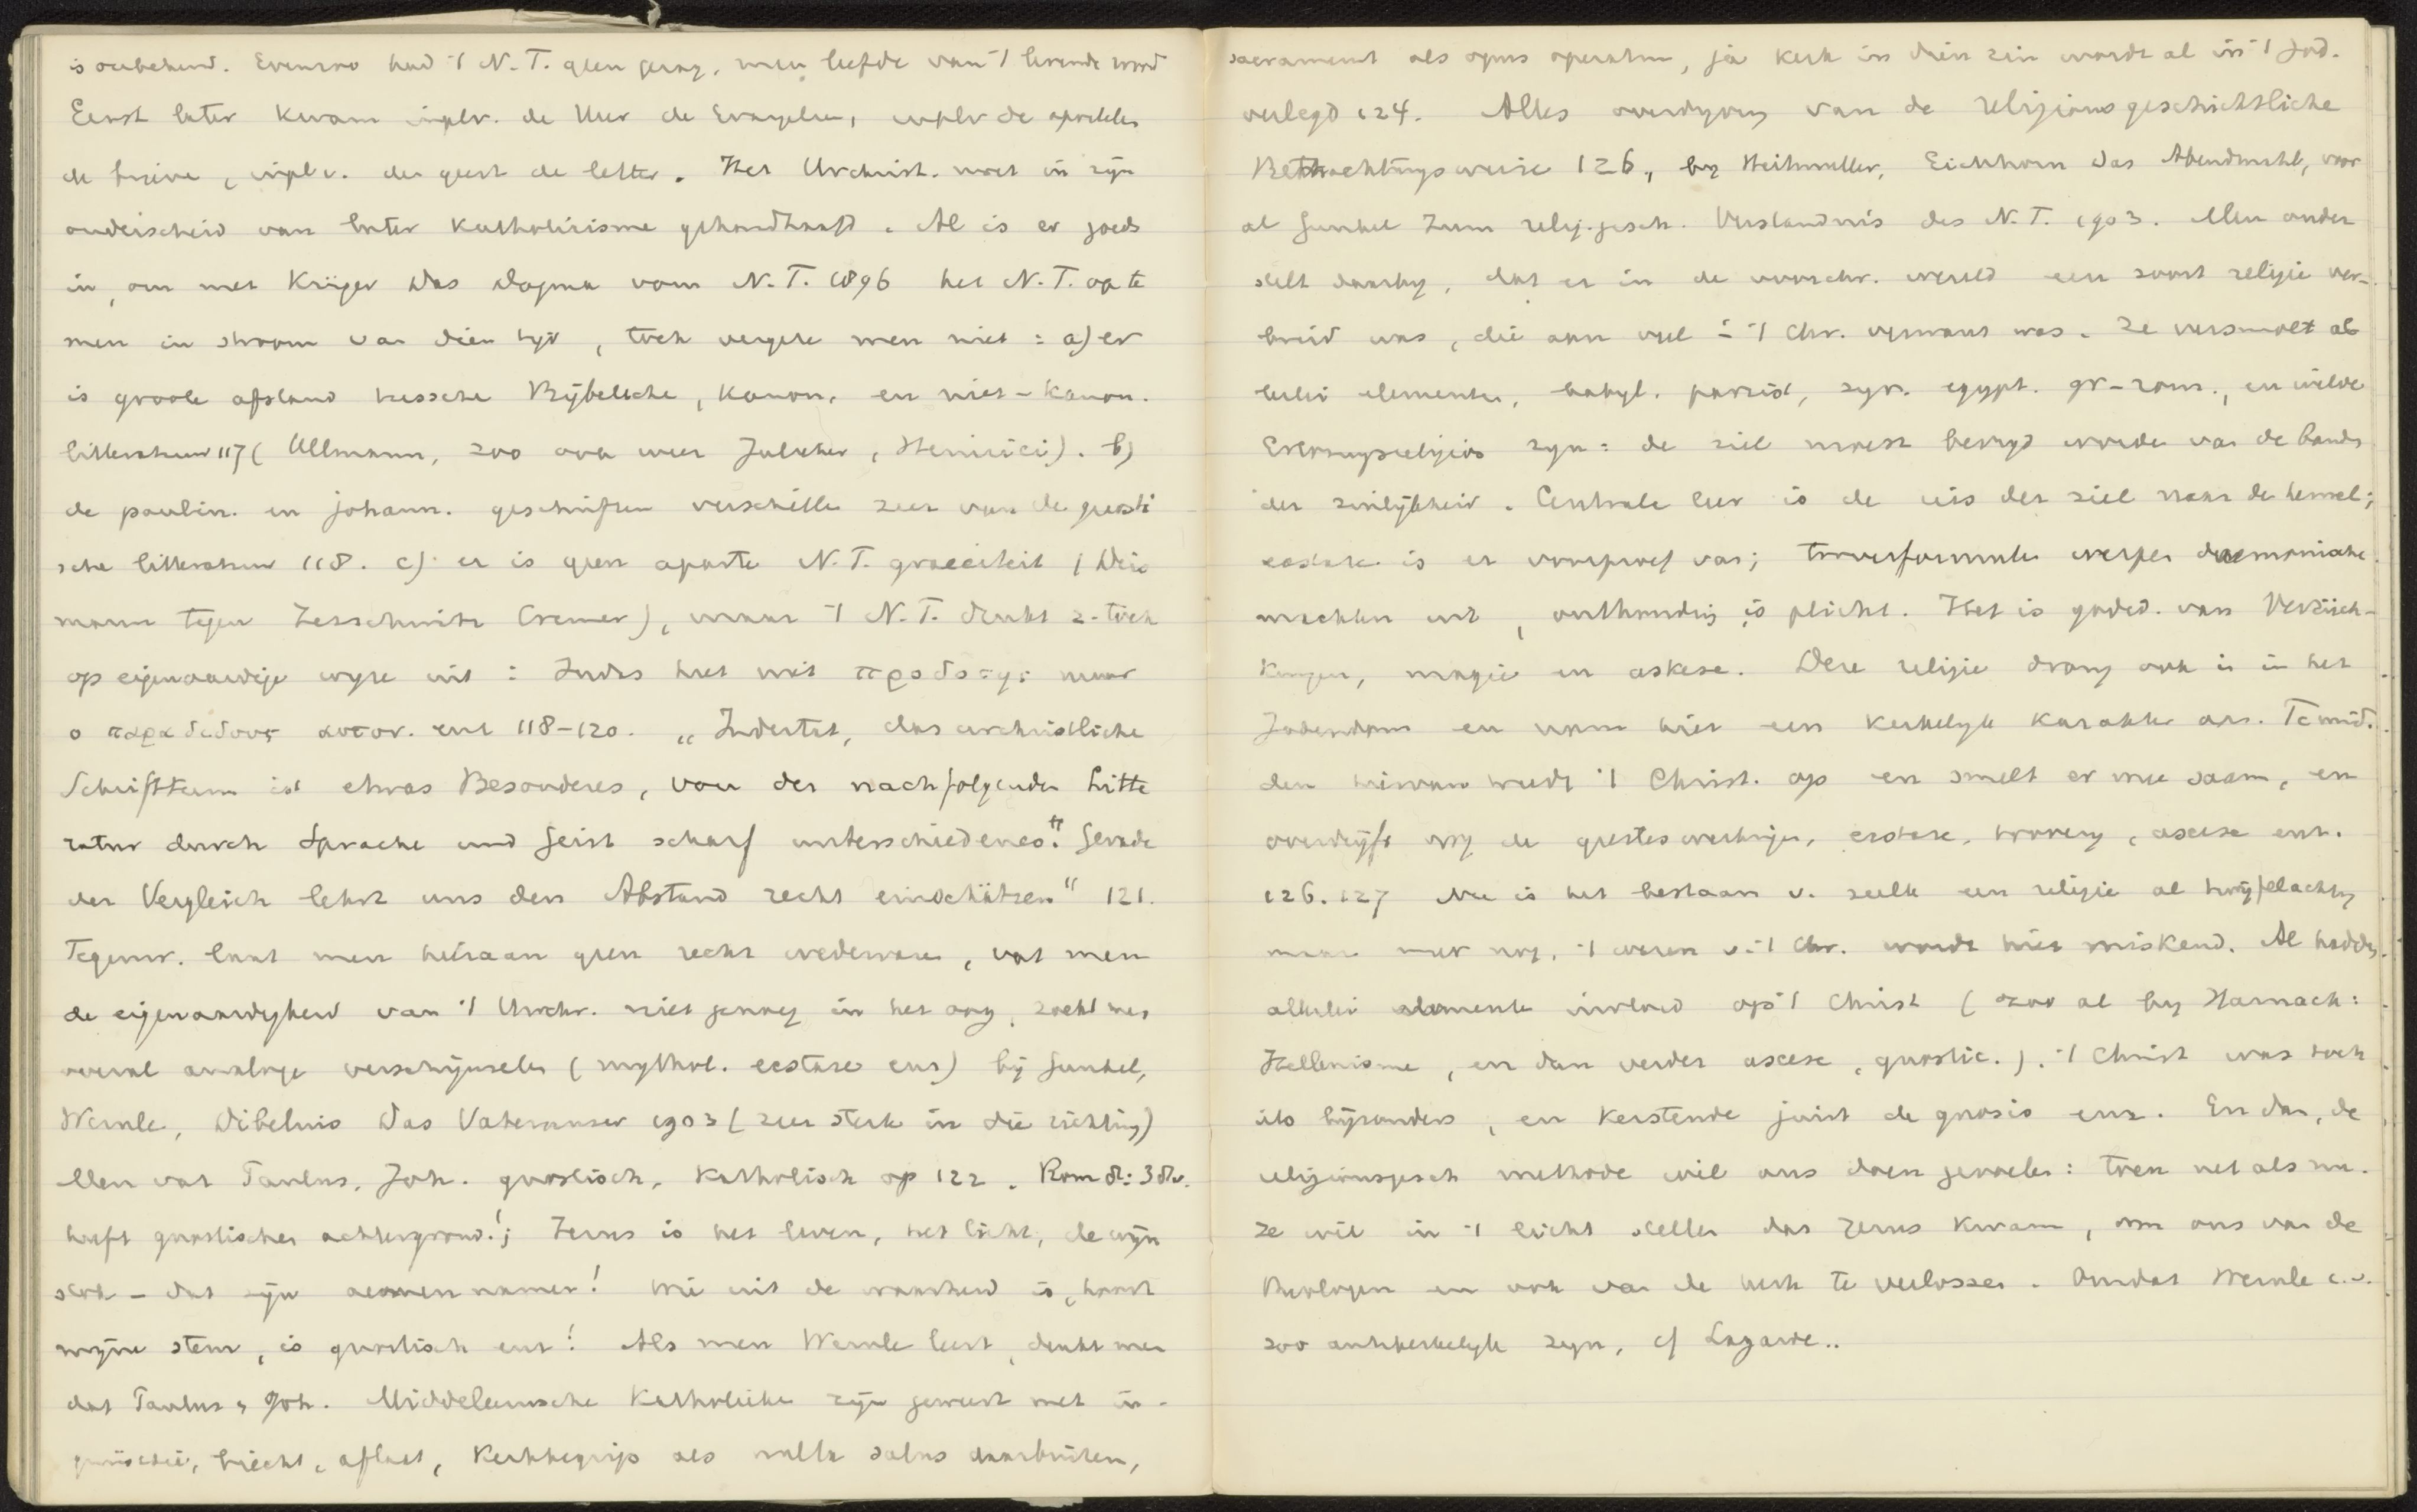 is onbekend. Evenzoo had 't N.T. geen gezag, men leefde van 't levende woord
Eerst later kwam in plv. de Heer de Evangelien, in plv de apostelen
de brieven, in pl v. den geest de letter. Het Urchrist. moet in zijn
onderscheid van later Katholicisme gehandhaafd. Al is er goeds
in, om met Krüger Das Dogma vom N.T. 1896 het N.T. op te
men in stroom van dien tijd, toch vergete men niet: a) er
is groote afstand tusschen Bijbelsche, Kanon. en niet-Kanon.
litteratuur 117 (Ullmann, zoo ook weer Julicher, Heinrici). b)
de paulin. en johann. geschriften verschillen zeer van de gnosti
sche litteratuur 118. c) er is geen aparte N.T. graeciteit (Deis
mann tegen Zesschwitz Cremer), maar 't N.T. drukt z. toch
op eigenaardige wijze uit: Judas heet niet προδοτης maar
ο παραδιδους αυτον. enz 118-120. „Indertat, das urchristliche
Schrifttum ist etwas Besonderes, von der nachfolgenden Litte
ratur durch Sprache und Geist scharf unterschiedenes." Gerade
der Vergleich lehrt uns den Abstand recht einschätzen" 121.
Tegenw. laat men hieraan geen recht wedervaren, vat men
de eigenaardigheid van 't Urchr. niet genoeg in het oog, zoekt men
overal analoge verschijnselen (mythol. ecstase enz) bij Gunkel,
Wernle, Dibelius Das Vaterunser 1903 (zeer sterk in die richting)
Men vat Paulus, Joh. gnostisch, Katholisch op 122. Rom 8:38v.
heeft gnostischen achtergrond!; Jezus is het leven, het licht, de wijn
stok - dat zijn aeonen namen! Wie uit de waarheid is, hoort
mijne stem, is gnostisch enz! Als men Wernle leest, denkt men
dat Paulus, Joh. Middeleeuwsche Katholieken zijn geweest met in-
quisitie, biecht, aflaat, Kerkbegrip als nulla salus daarbuiten,
sacrament als opus operatum, ja Kerk in dien zin wordt al in 't Jod.
verlegd 124. Alles overdrijving van de religionsgeschichtliche
Betrachtungsweise 126, bij Heitmuller, Eichhorn Das Abendmahl, voor
al Gunkel Zum relig.gesch. Verstandnis des N.T. 1903. Men onder
stelt daarbij, dat er in de voorchr. wereld een soort religie ver-
breid was, die aan veel in 't Chr. verwant was. Ze versmolt al
lerlei elementen, babyl. parzist, syr. egypt. gr-rom., en wilde
Erlosungsreligion zijn: de ziel moest bevrijd worden van de banden
der zinlijkheid. Centrale leer is de reis der ziel naar de hemel;
ecstase is er voorproef van; tooverformulen werpen daemonische
machten uit, onthouding is plicht. Het is godsd. van Verzück-
kungen, magie en askese. Deze religie drong ook in in het
Jodendom en nam hier een Kerkelijk Karakter aan. Te mid.
den hiervan treedt 't Christ. op en smelt er mee saam, en
overdrijft nog de geesteswerkingen, ecstase, toovery, ascese enz.
126. 127 Nu is het bestaan v. zulk een religie al twijfelachtig
maar meer nog, 't wezen v. 't Chr. wordt hier miskend. Al hadden
allerlei elementen invloed op 't Christ (zoo al bij Harnack:
Hellenisme, en dan verder ascese, gnostic.). 't Christ was toch
iets bijzonders, en Kerstende juist de gnosis enz. En dan, de
religionsgesch methode wil ons doen gevoelen: toen net als nu.
Ze wil in 't licht stellen dat Jezus kwam, om ons van de
theologen en ook van de kerk te verlossen. Omdat Wernle c.s.
zoo antikerkelijk zijn, cf Lagarde..